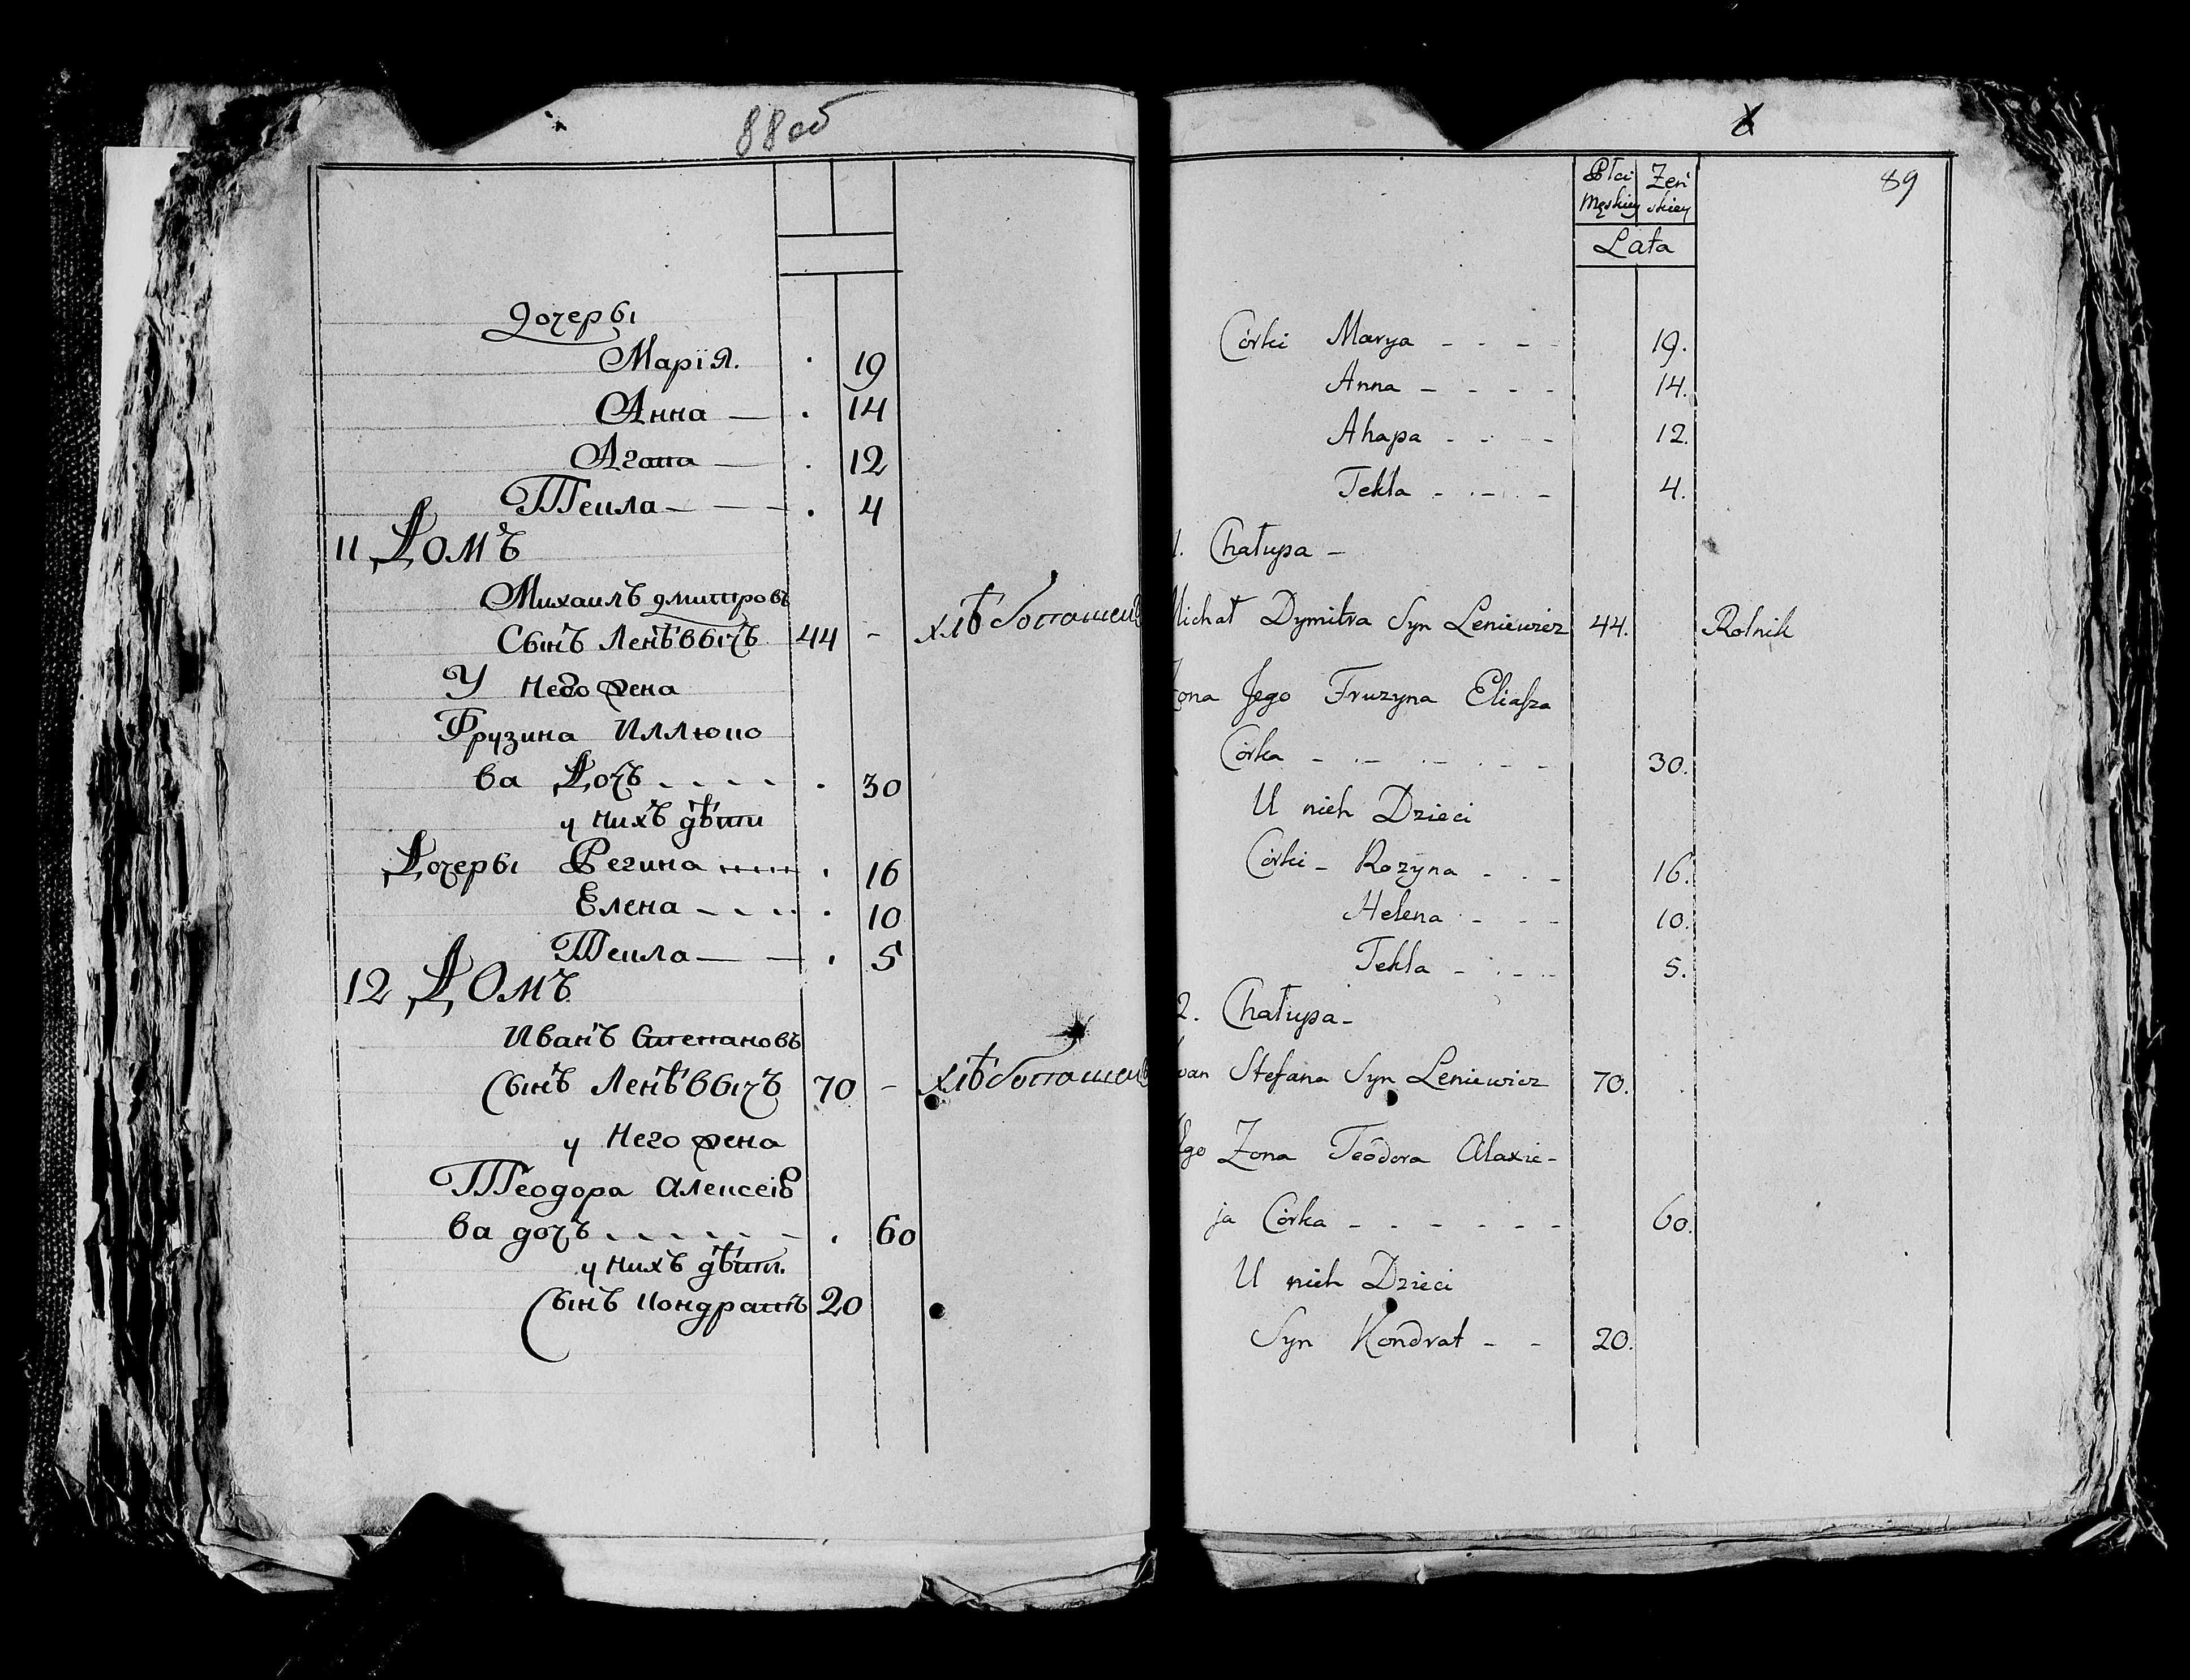 88 об
Дочеры
Марія. 19
Анна 14
Агапа 12
Текла 4
11 Домъ
Михаилъ дмитровъ
Сынъ Ленѣввичъ 44 - хлѣбопашец
У Него жена
Фрузина Иллюшо
ва Дочь 30
у нихъ дѣти
Дочеры Регина 16
Елена 10
Текла 5
12 Домъ
Иванъ Степановъ
Сынъ Ленѣввичъ 70 - хлѣбопашец
у Него жена
Теодора Алексеіо
ва дочь 60
у нихъ дѣти.
Сынъ Кондратъ 20
89
Płci Męskiey Żeńskiey
Lata
Córki Marya - - - - 19.
Anna - - - - 14.
Ahapa - - - - 12.
Tekla - - - - 4.
1. Chałupa -
Michał Dymitra Syn Leniewicz 44. Rolnik
Żona Jego Fruzyna Eliasza
Córka - - - - - - 30.
U nich Dzieci
Córki - Rozyna - - - 16.
Helena - - - 10.
Tekla - - - 5.
2. Chałupa -
wan Stefana Syn Leniewicz 70.
Jgo Żona Teodora Alaxie-
ja Córka - - - - - - 60.
U nich Dzieci
Syn Kondrat - - 20.